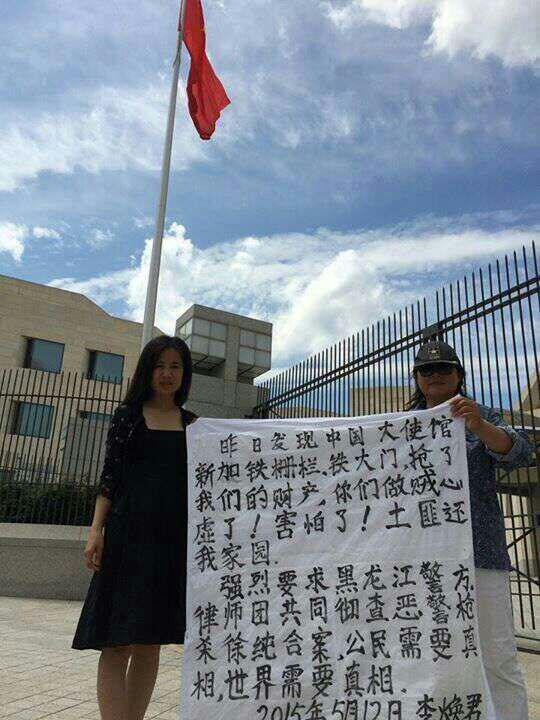 昨日发现中国大使馆
新加铁栅栏、铁大门，抢了
我们的财产，你们做贼心
虚了！害怕了！土匪还
我家园.
强烈要求黑龙江警方,
律师团共同彻查恶警枪
杀徐纯合案，公民需要真
相，世界需要真相.
2015年5月12日 李焕君